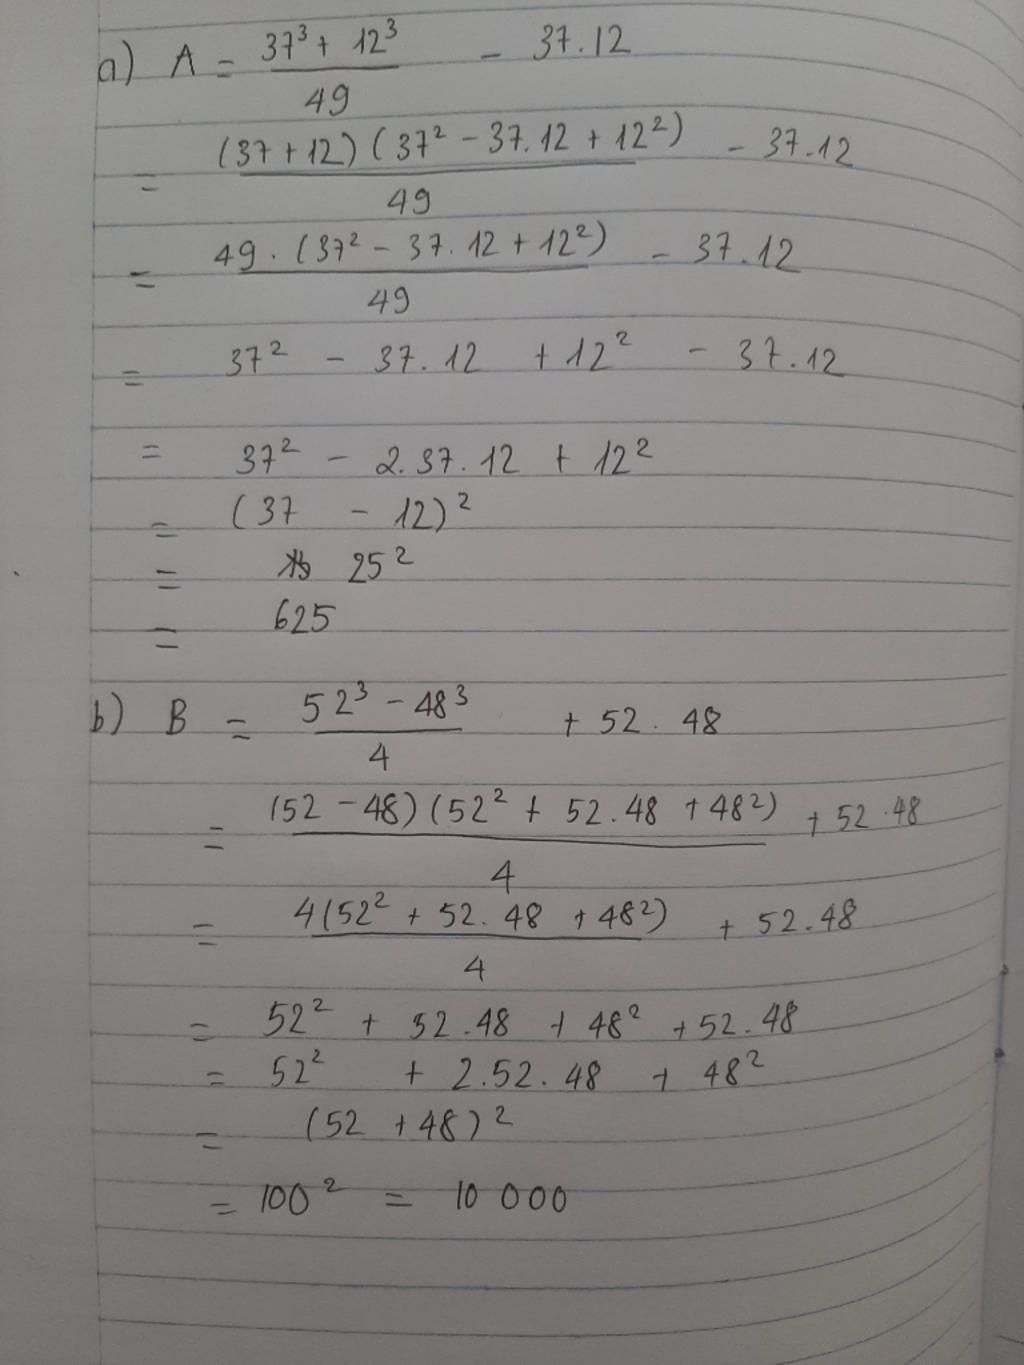 a) A = 37³ + 12³ - 37.12
49
= (37 + 12) (37² - 37.12 + 12²) - 37.12
49
= 49 . (37² - 37.12 + 12²) - 37.12
49
= 37² - 37.12 + 12² - 37.12
= 37² - 2.37.12 + 12²
= (37 - 12)²
= 25²
= 625
b) B = 52³ - 48³ + 52.48
4
= (52 - 48) (52² + 52.48 + 48²) + 52.48
4
= 4(52² + 52.48 + 48²) + 52.48
4
= 52² + 52.48 + 48² + 52.48
= 52² + 2.52.48 + 48²
= (52 + 48)²
= 100² = 10 000